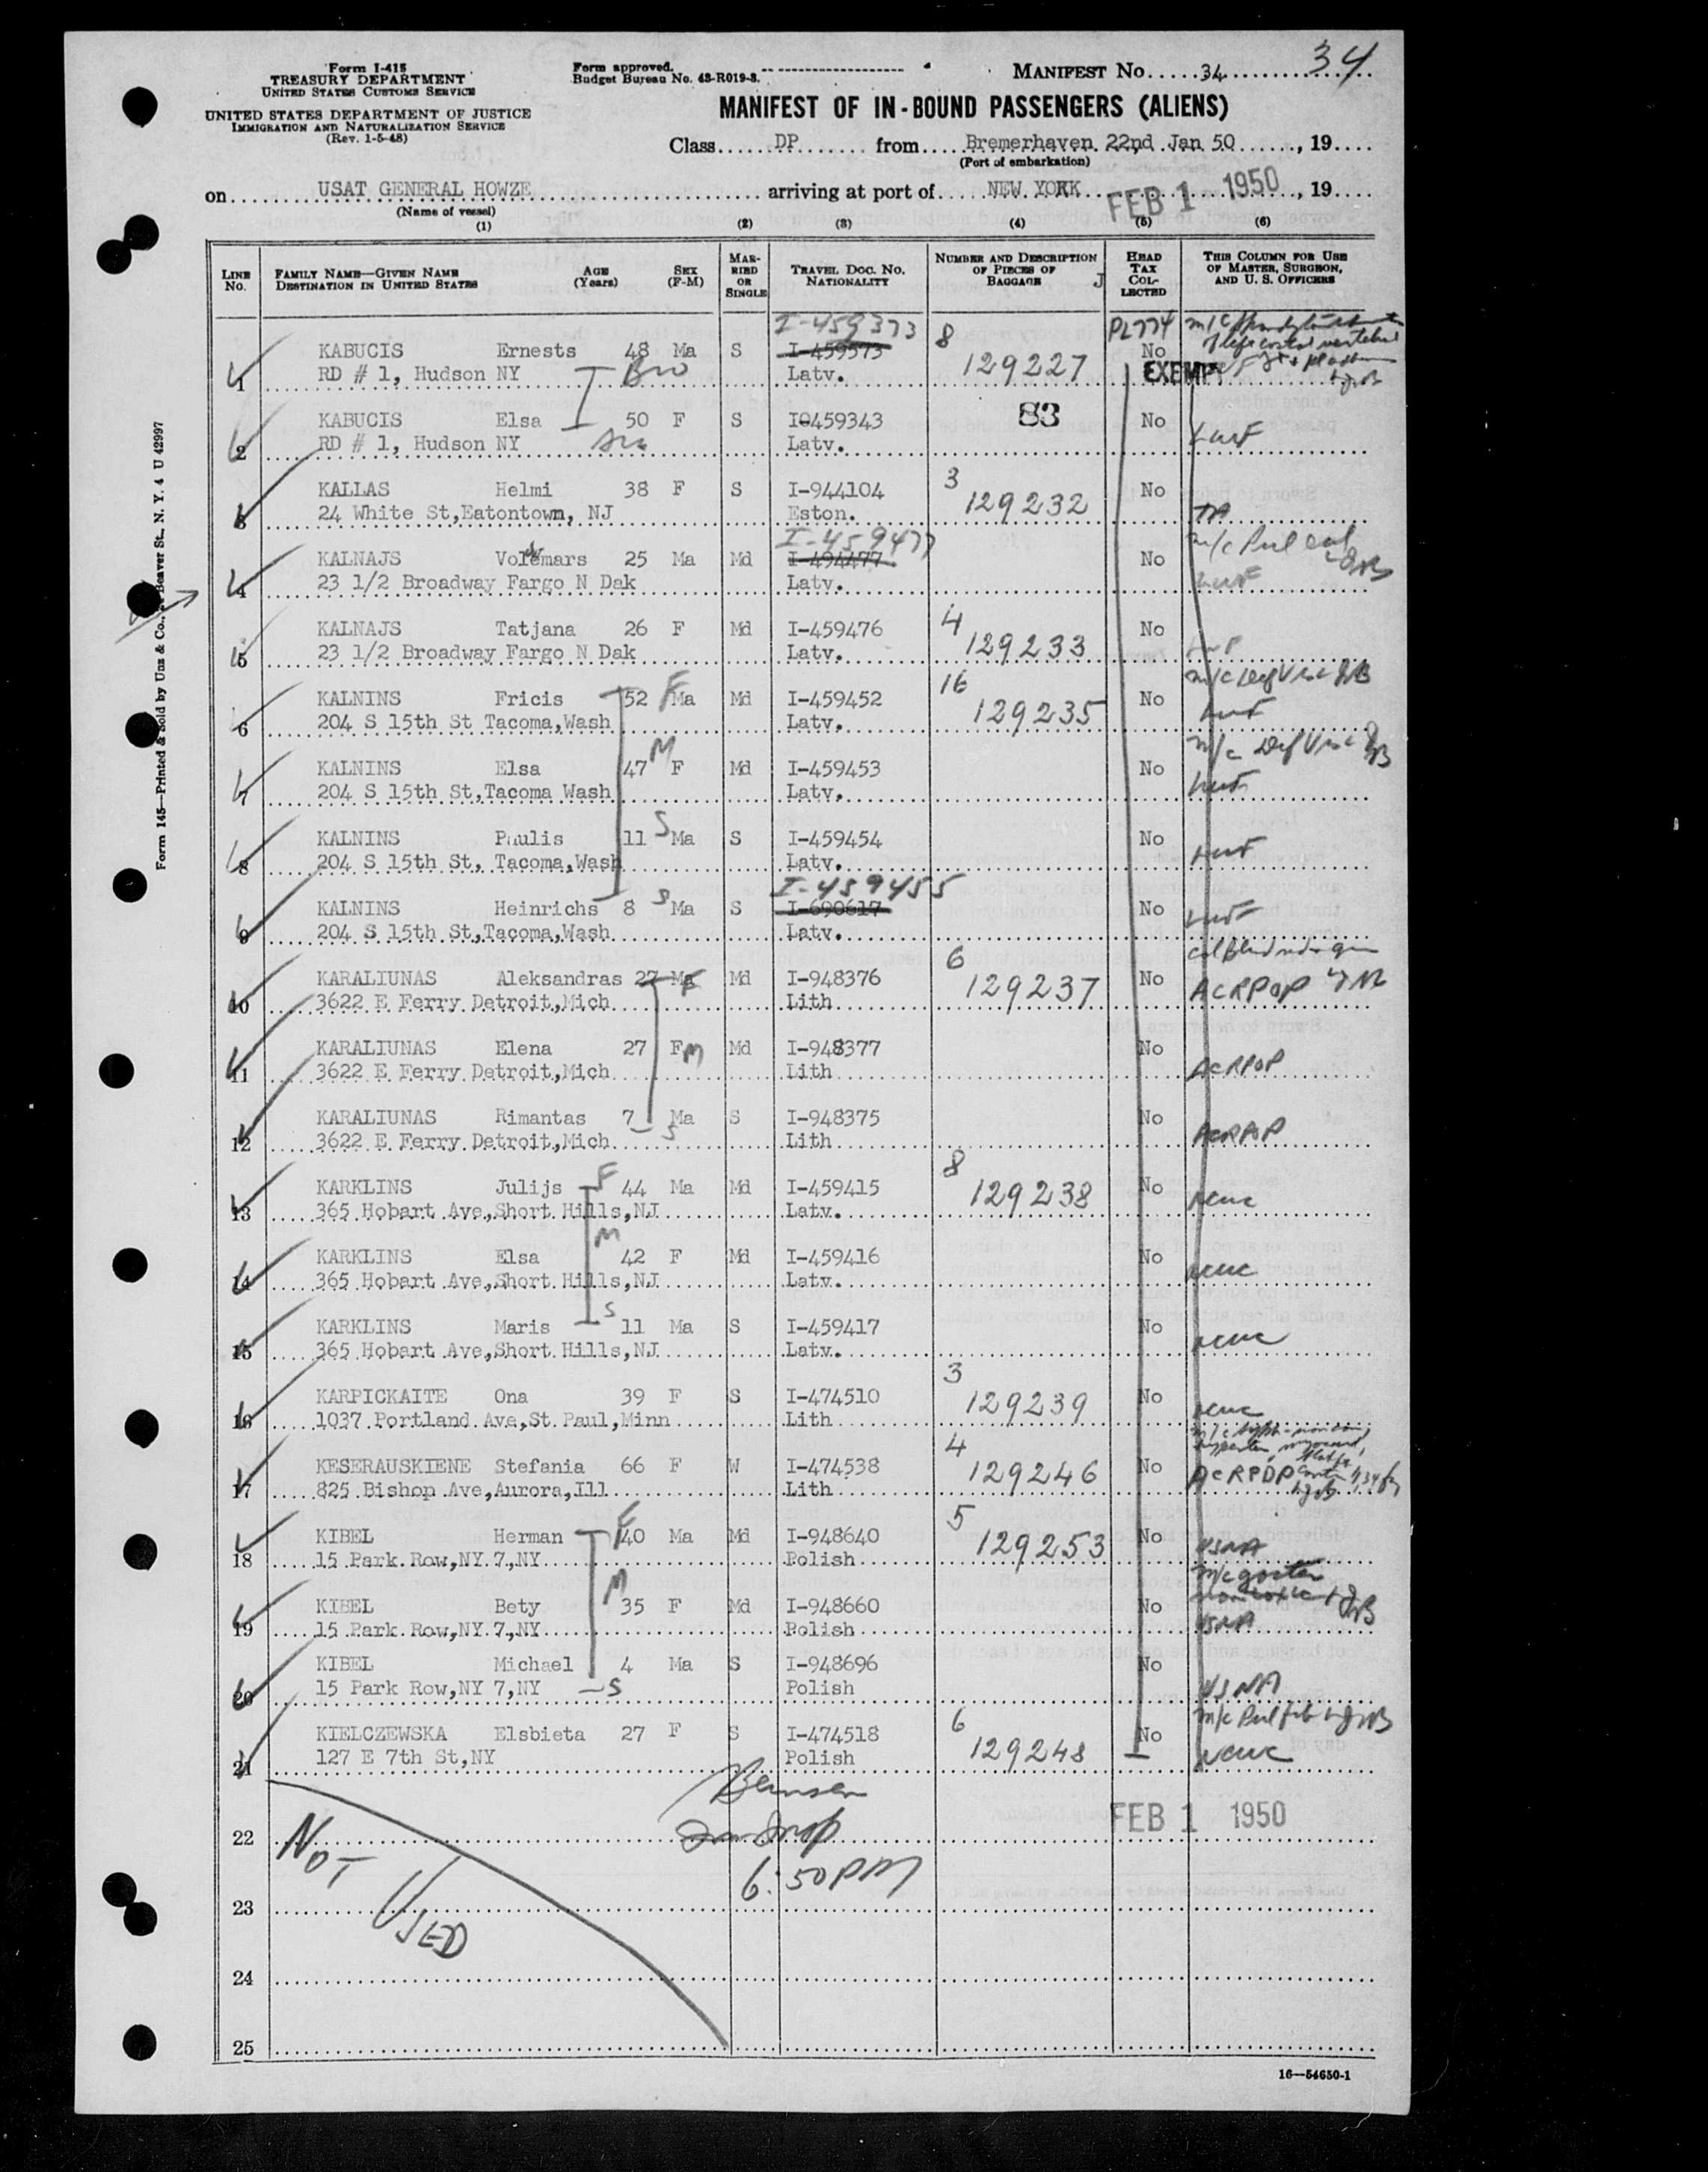 34
Form I-415
TREASURY DEPARTMENT
UNITED STATES CUSTOMS SERVICE
UNITED STATES DEPARTMENT OF JUSTICE
IMMIGRATION AND NATURALIZATION SERVICE
(Rev. 1-5-48)
Form approved.
Budget Bureau No. 43-R019-3.
MANIFEST No. 34
MANIFEST OF IN-BOUND PASSENGERS (ALIENS)
Class DP from Bremerhaven 22nd Jan 50, 19
(Port of embarkation)
on USAT GENERAL HOWZE arriving at port of NEW YORK FEB 1 1950, 19
(Name of vessel)
(1) (2) (3) (4) (5) (6)
LINE No. FAMILY NAME—GIVEN NAME DESTINATION IN UNITED STATES AGE (Years) SEX (F-M) MARRIED OR SINGLE TRAVEL DOC. No. NATIONALITY NUMBER AND DESCRIPTION OF PIECES OF BAGGAGE J HEAD TAX COLLECTED THIS COLUMN FOR USE OF MASTER, SURGEON, AND U. S. OFFICERS
I-459373 8 PL774
KABUCIS Ernests 48 Ma S I-459573 129227 No
1 RD # 1, Hudson NY Bro Latv. EXEMPT
KABUCIS Elsa 50 F S I0459343 83 No
2 RD # 1, Hudson NY Sis Latv. LWF
KALLAS Helmi 38 F S I-944104 3 129232 No
3 24 White St,Eatontown, NJ Eston. TA
I-459477
KALNAJS Voldemars 25 Ma Md I-494477 No
4 23 1/2 Broadway Fargo N Dak Latv. LWF
KALNAJS Tatjana 26 F Md I-459476 4 129233 No
5 23 1/2 Broadway Fargo N Dak Latv. LWF
KALNINS Fricis 52 F Ma Md I-459452 16 129235 No m/c Def Vis
6 204 S 15th St Tacoma,Wash Latv. LWF
KALNINS Elsa 47 M F Md I-459453 No m/c Def Vis
7 204 S 15th St,Tacoma Wash Latv. LWF
KALNINS Paulis 11 S Ma S I-459454 No
8 204 S 15th St, Tacoma,Wash Latv. LWF
I-459455
KALNINS Heinrichs 8 S Ma S I-690617 No
9 204 S 15th St,Tacoma,Wash Latv. LWF
KARALIUNAS Aleksandras 27 Ma F Md I-948376 6 129237 No
10 3622 E Ferry Detroit,Mich Lith ACRPDP
KARALIUNAS Elena 27 F M Md I-948377 No
11 3622 E Ferry Detroit,Mich Lith ACRPDP
KARALIUNAS Rimantas 7 Ma S S I-948375 No
12 3622 E Ferry Detroit,Mich Lith ACRPDP
KARKLINS Julijs F 44 Ma Md I-459415 8 129238 No
13 365 Hobart Ave,Short Hills,NJ Latv. NCWC
KARKLINS Elsa M 42 F Md I-459416 No
14 365 Hobart Ave,Short Hills,NJ Latv. NCWC
KARKLINS Maris S 11 Ma S I-459417 No
15 365 Hobart Ave,Short Hills,NJ Latv. NCWC
KARPICKAITE Ona 39 F S I-474510 3 129239 No
16 1037 Portland Ave,St.Paul,Minn Lith NCWC
KESERAUSKIENE Stefania 66 F W I-474538 4 129246 No
17 825 Bishop Ave,Aurora,Ill Lith ACRPDP
KIBEL Herman F 40 Ma Md I-948640 5 129253 No
18 15 Park Row,NY 7,NY Polish USNA
KIBEL Bety M 35 F Md I-948660 No
19 15 Park Row,NY 7,NY Polish USNA
KIBEL Michael 4 Ma S I-948696 No
20 15 Park Row,NY 7,NY S Polish USNA
KIELCZEWSKA Elsbieta 27 F S I-474518 6 129248 No
21 127 E 7th St,NY Polish NCWC
22 NOT USED 6:50 PM FEB 1 1950
23
24
25
16—54650-1
Form 145—Printed & Sold by Unz & Co., Beaver St., N. Y. 4 U 42997